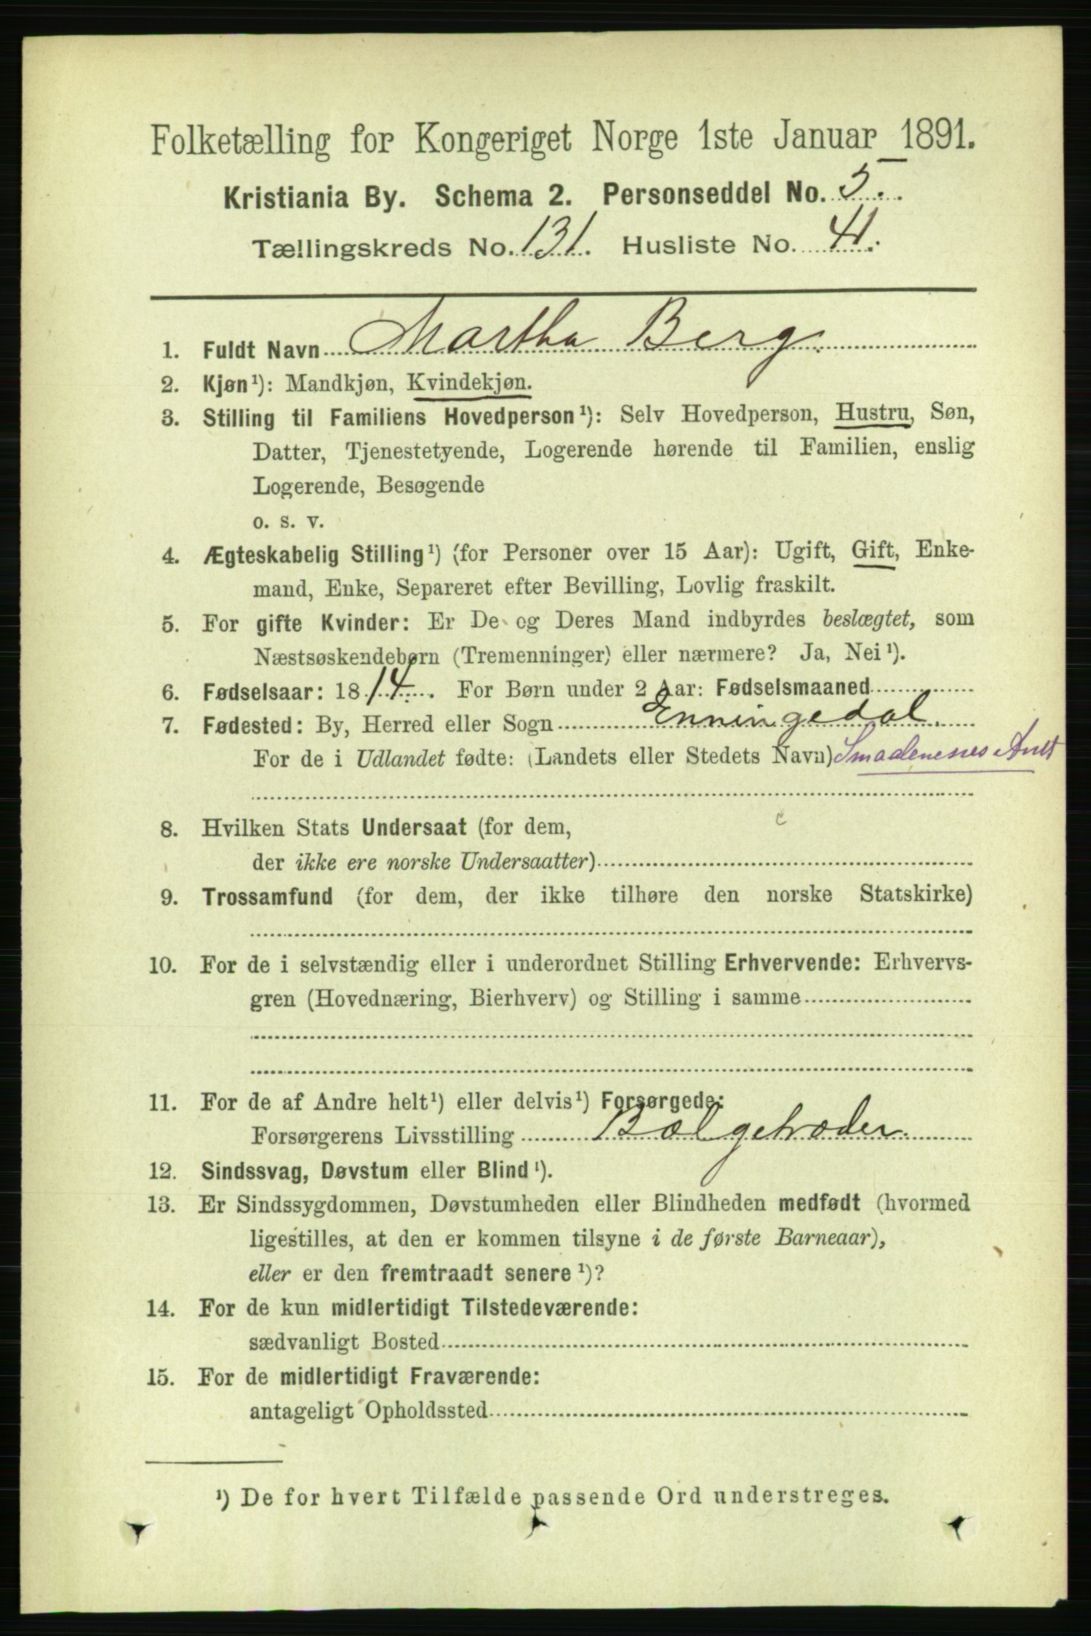 Folketælling for Kongeriget Norge 1ste Januar 1891.
Kristiania By. Schema 2. Personseddel No. 5.
Tællingskreds No. 131. Husliste No. 41.
1. Fuldt Navn Martha Berg.
2. Kjøn¹): Mandkjøn, Kvindekjøn.
3. Stilling til Familiens Hovedperson¹): Selv Hovedperson, Hustru, Søn,
Datter, Tjenestetyende, Logerende hørende til Familien, enslig
Logerende, Besøgende
o. s. v.
4. Ægteskabelig Stilling¹) (for Personer over 15 Aar): Ugift, Gift, Enke-
mand, Enke, Separeret efter Bevilling, Lovlig fraskilt.
5. For gifte Kvinder: Er De og Deres Mand indbyrdes beslægtet, som
Næstsøskendebørn (Tremenninger) eller nærmere? Ja, Nei¹).
6. Fødselsaar: 1814. For Børn under 2 Aar: Fødselsmaaned
7. Fødested: By, Herred eller Sogn Enningedal.
For de i Udlandet fødte: (Landets eller Stedets Navn) Smaalenenes Amt
8. Hvilken Stats Undersaat (for dem,
der ikke ere norske Undersaatter)
9. Trossamfund (for dem, der ikke tilhøre den norske Statskirke)
10. For de i selvstændig eller i underordnet Stilling Erhvervende: Erhvervs-
gren (Hovednæring, Bierhverv) og Stilling i samme
11. For de af Andre helt¹) eller delvis¹) Forsørgede:
Forsørgerens Livsstilling Bælgetræder.
12. Sindssvag, Døvstum eller Blind¹).
13. Er Sindssygdommen, Døvstumheden eller Blindheden medfødt (hvormed
ligestilles, at den er kommen tilsyne i de første Barneaar),
eller er den fremtraadt senere¹)?
14. For de kun midlertidigt Tilstedeværende:
sædvanligt Bosted
15. For de midlertidigt Fraværende:
antageligt Opholdssted
¹) De for hvert Tilfælde passende Ord understreges.